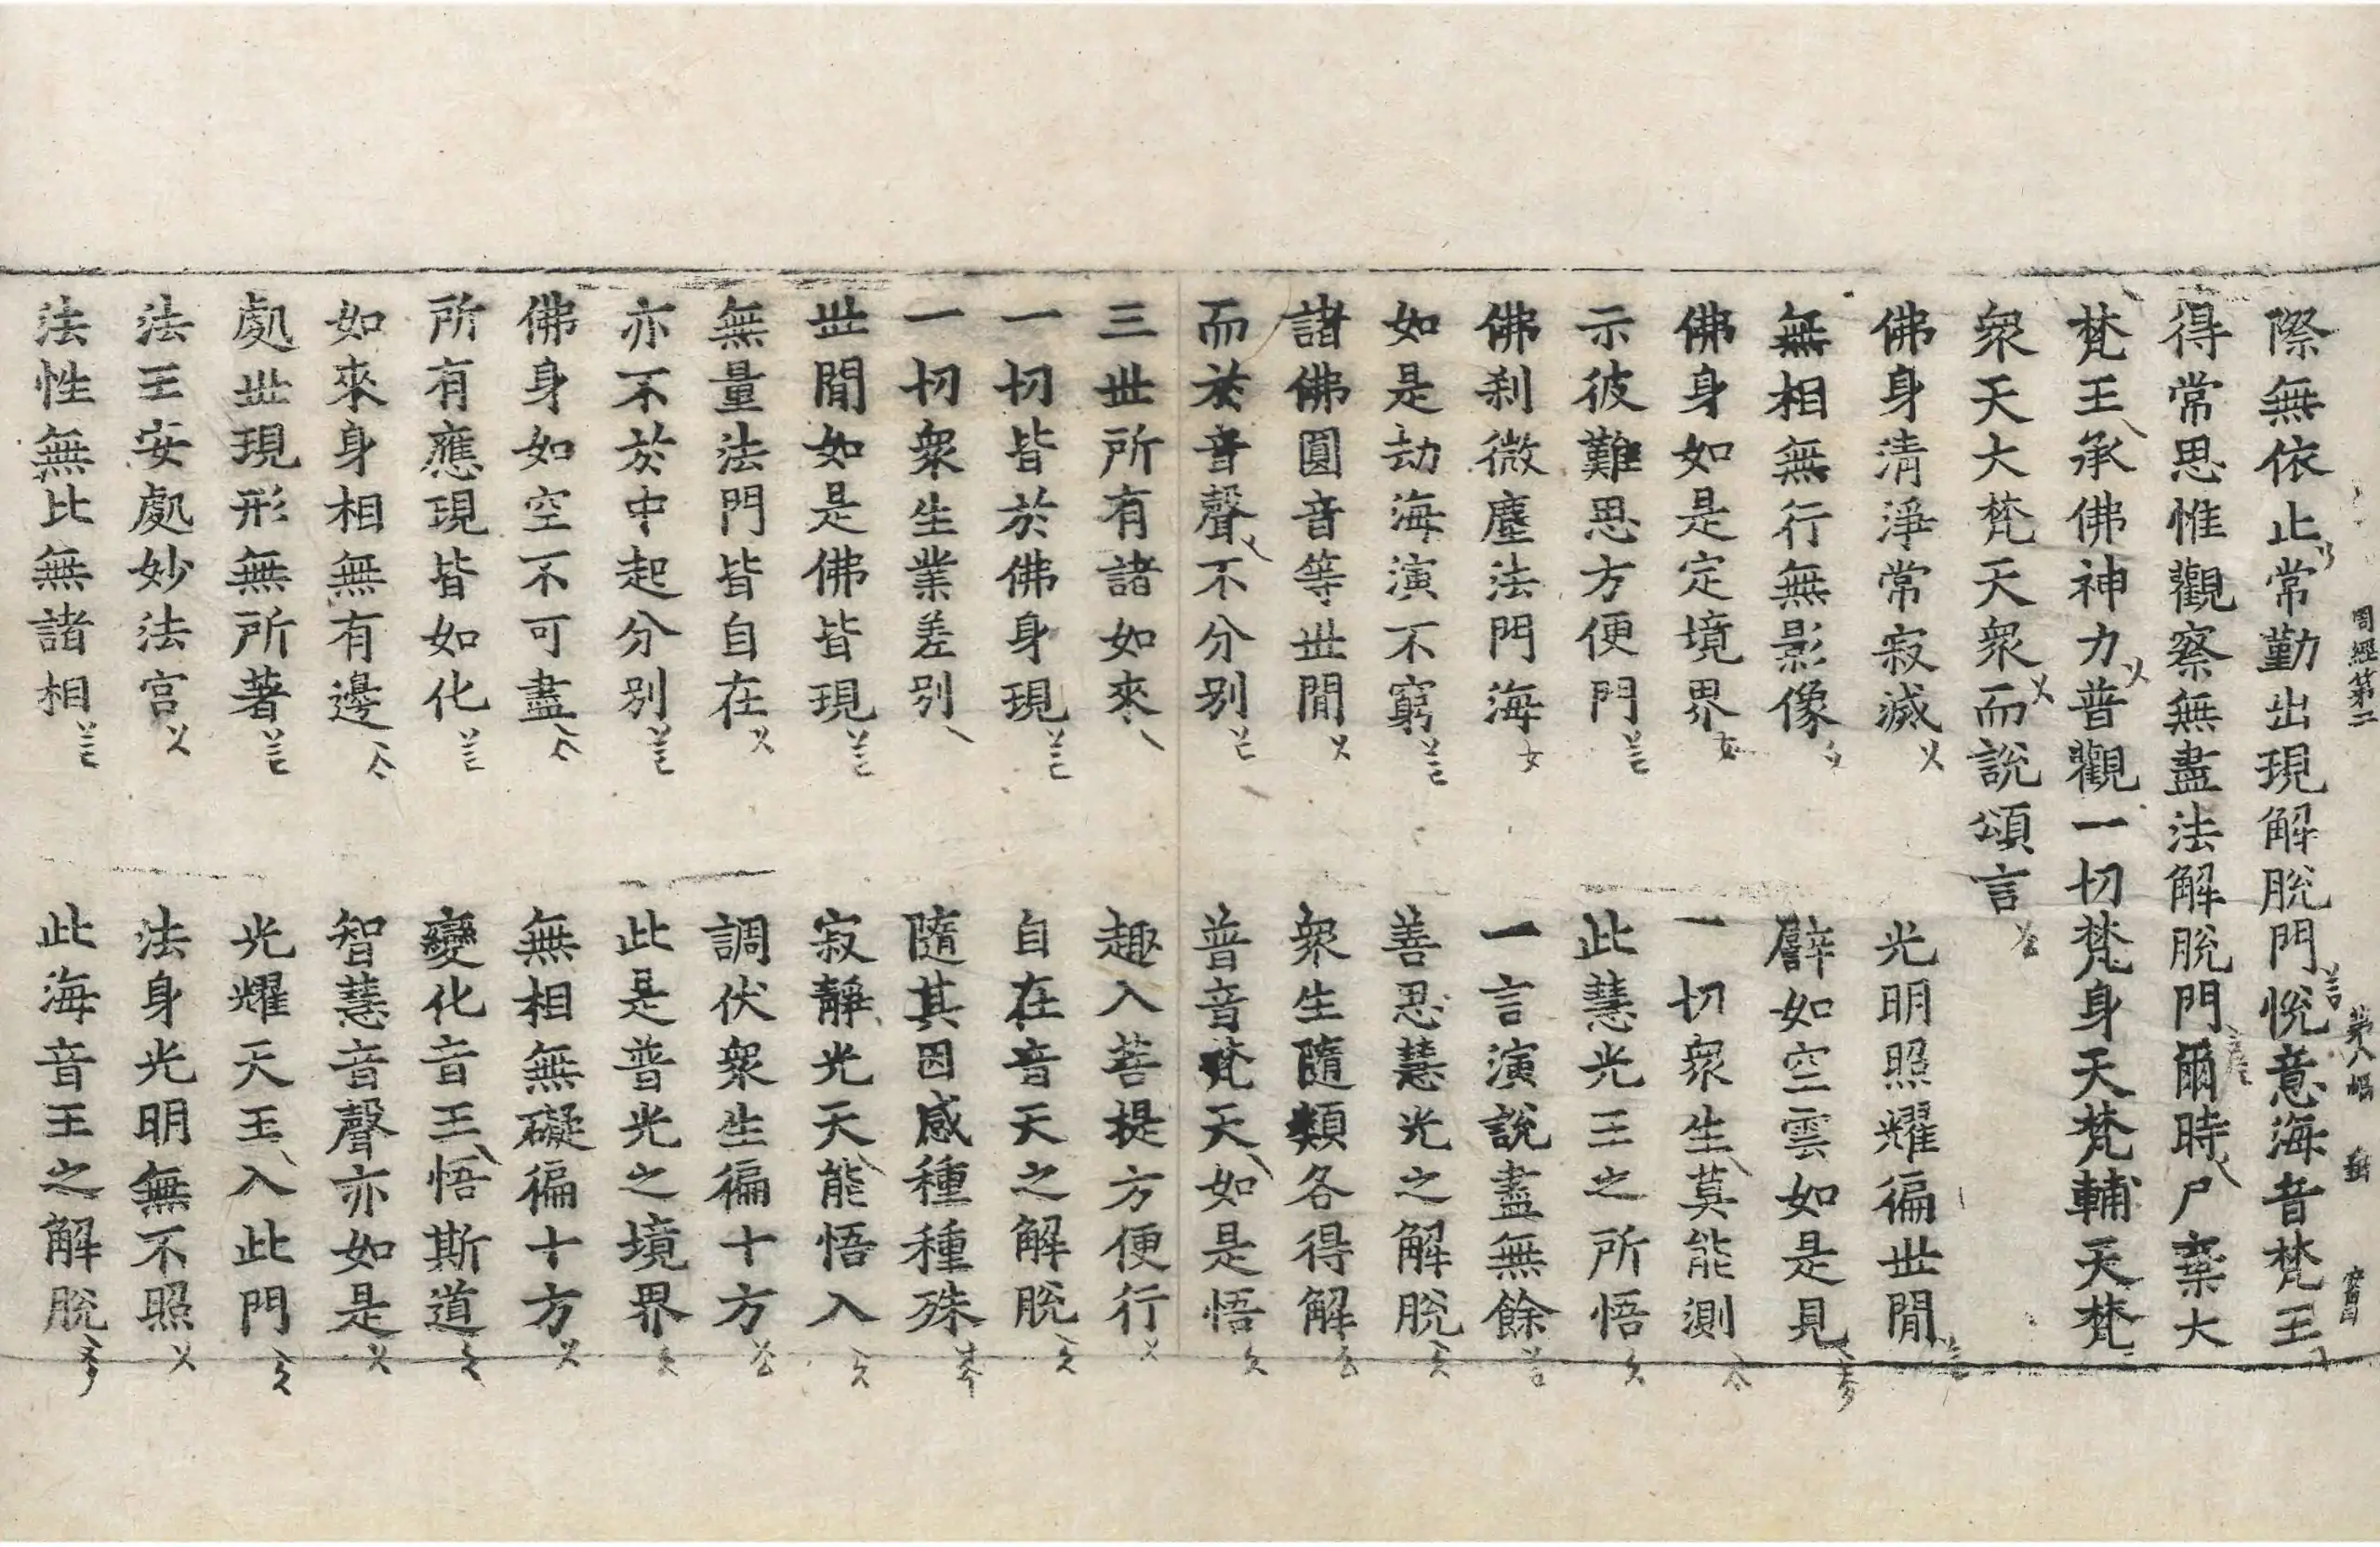 周經第二 第八幅
際無依止常勤出現解脫門悅意海音梵王
得常思惟觀察無盡法解脫門爾時尸棄大
梵王承佛神力普觀一切梵身天梵輔天梵
衆天大梵天衆而說頌言
佛身清淨常寂滅 光明照耀徧世閒
無相無行無影像 譬如空雲如是見
佛身如是定境界 一切衆生莫能測
示彼難思方便門 此慧光王之所悟
佛刹微塵法門海 一言演說盡無餘
如是劫海演不窮 善思慧光之解脫
諸佛圓音等世閒 衆生隨類各得解
而於音聲不分別 普音梵天如是悟
三世所有諸如來 趣入菩提方便行
一切皆於佛身現 自在音天之解脫
一切衆生業差別 隨其因感種種殊
世閒如是佛皆現 寂靜光天能悟入
無量法門皆自在 調伏衆生徧十方
亦不於中起分別 此是普光之境界
佛身如空不可盡 無相無礙徧十方
所有應現皆如化 變化音王悟斯道
如來身相無有邊 智慧音聲亦如是
處世現形無所著 光耀天王入此門
法王安處妙法宮 法身光明無不照
法性無比無諸相 此海音王之解脫